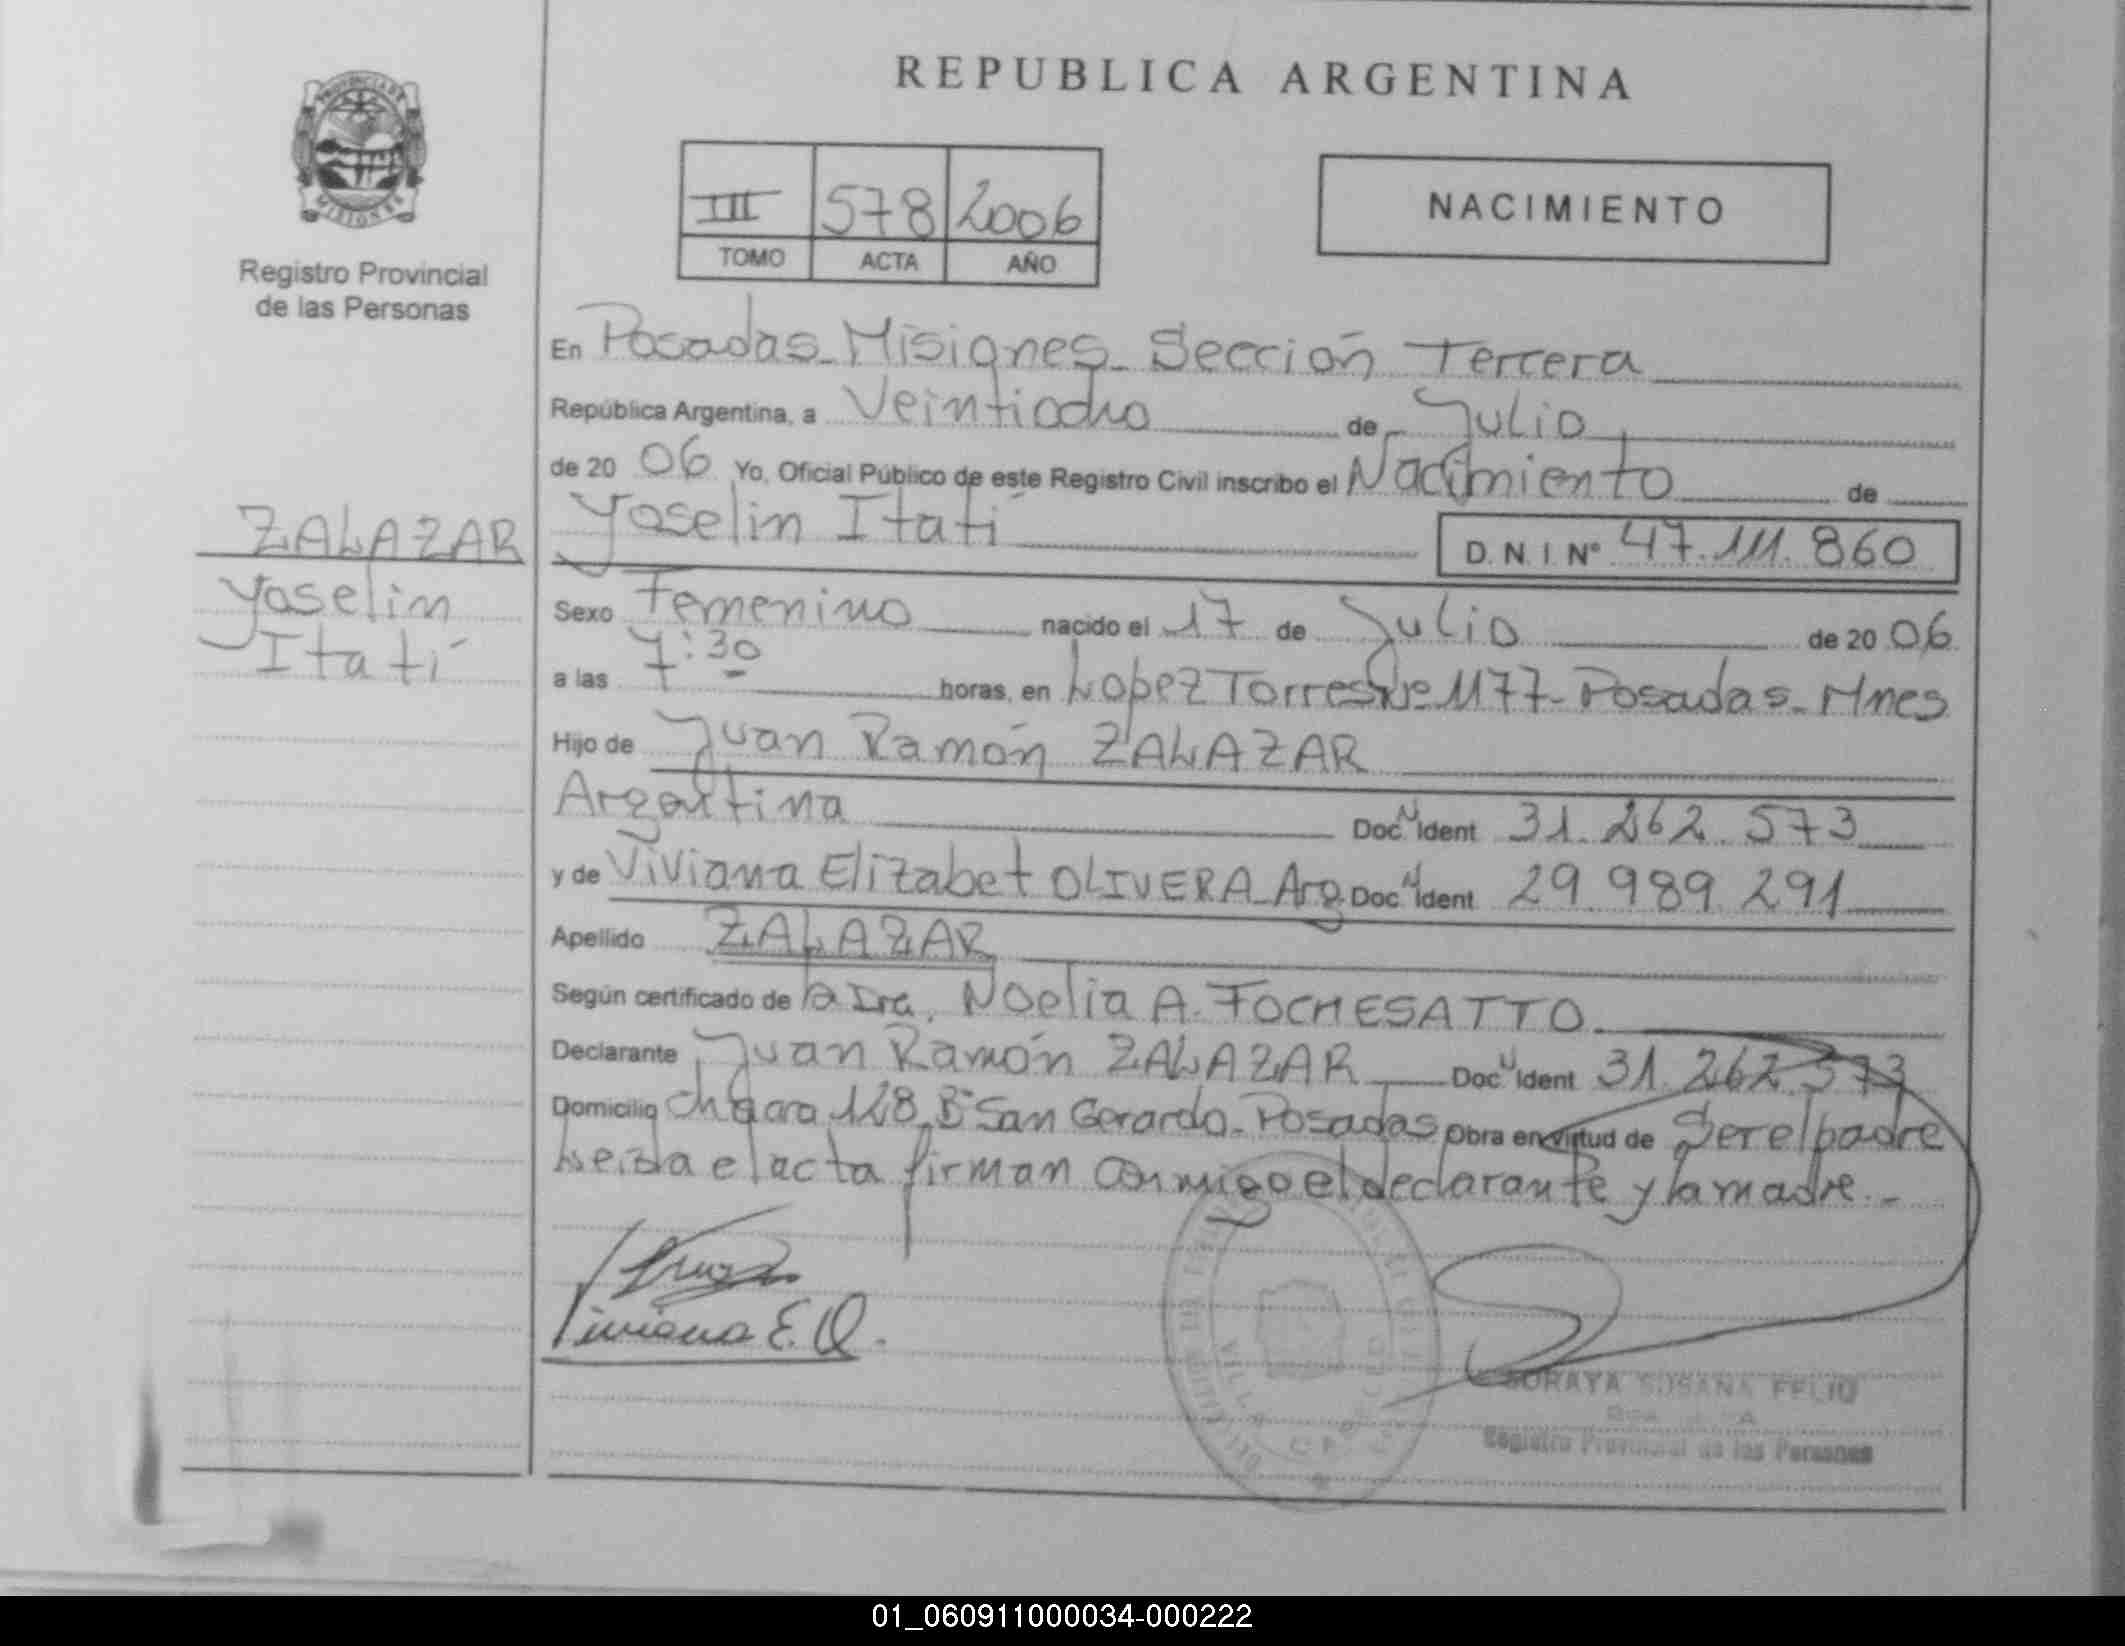 PROVINCIA DE
MISIONES
Registro Provincial
de las Personas
ZALAZAR
Yoselin
Itatí
REPUBLICA ARGENTINA
III 578 2006
TOMO ACTA AÑO
NACIMIENTO
En Posadas - Misiones - Sección Tercera
República Argentina, a Veintiocho de Julio
de 20 06 Yo, Oficial Público de este Registro Civil inscribo el Nacimiento de
Yoselin Itatí D.N.I. Nº 47.111.860
Sexo Femenino nacido el 17 de Julio de 20 06
a las 7:30 horas, en Lopez Torres Nº 1177 - Posadas - Mnes
Hijo de Juan Ramón ZALAZAR
Argentina Doc. N Ident 31.262.573
y de Viviana Elizabet OLIVERA - Arg. Doc. N Ident 29.989.291
Apellido ZALAZAR
Según certificado de la Dra. Noelia A. FOCHESATTO
Declarante Juan Ramón ZALAZAR Doc. N Ident 31.262.573
Domicilio chacra 128 Bº San Gerardo - Posadas Obra en virtud de Ser el padre
Leida el acta firman conmigo el declarante y la madre.-
Viviana E. O.
SORAYA SUSANA FELIU
Registro Provincial de las Personas
01_060911000034-000222